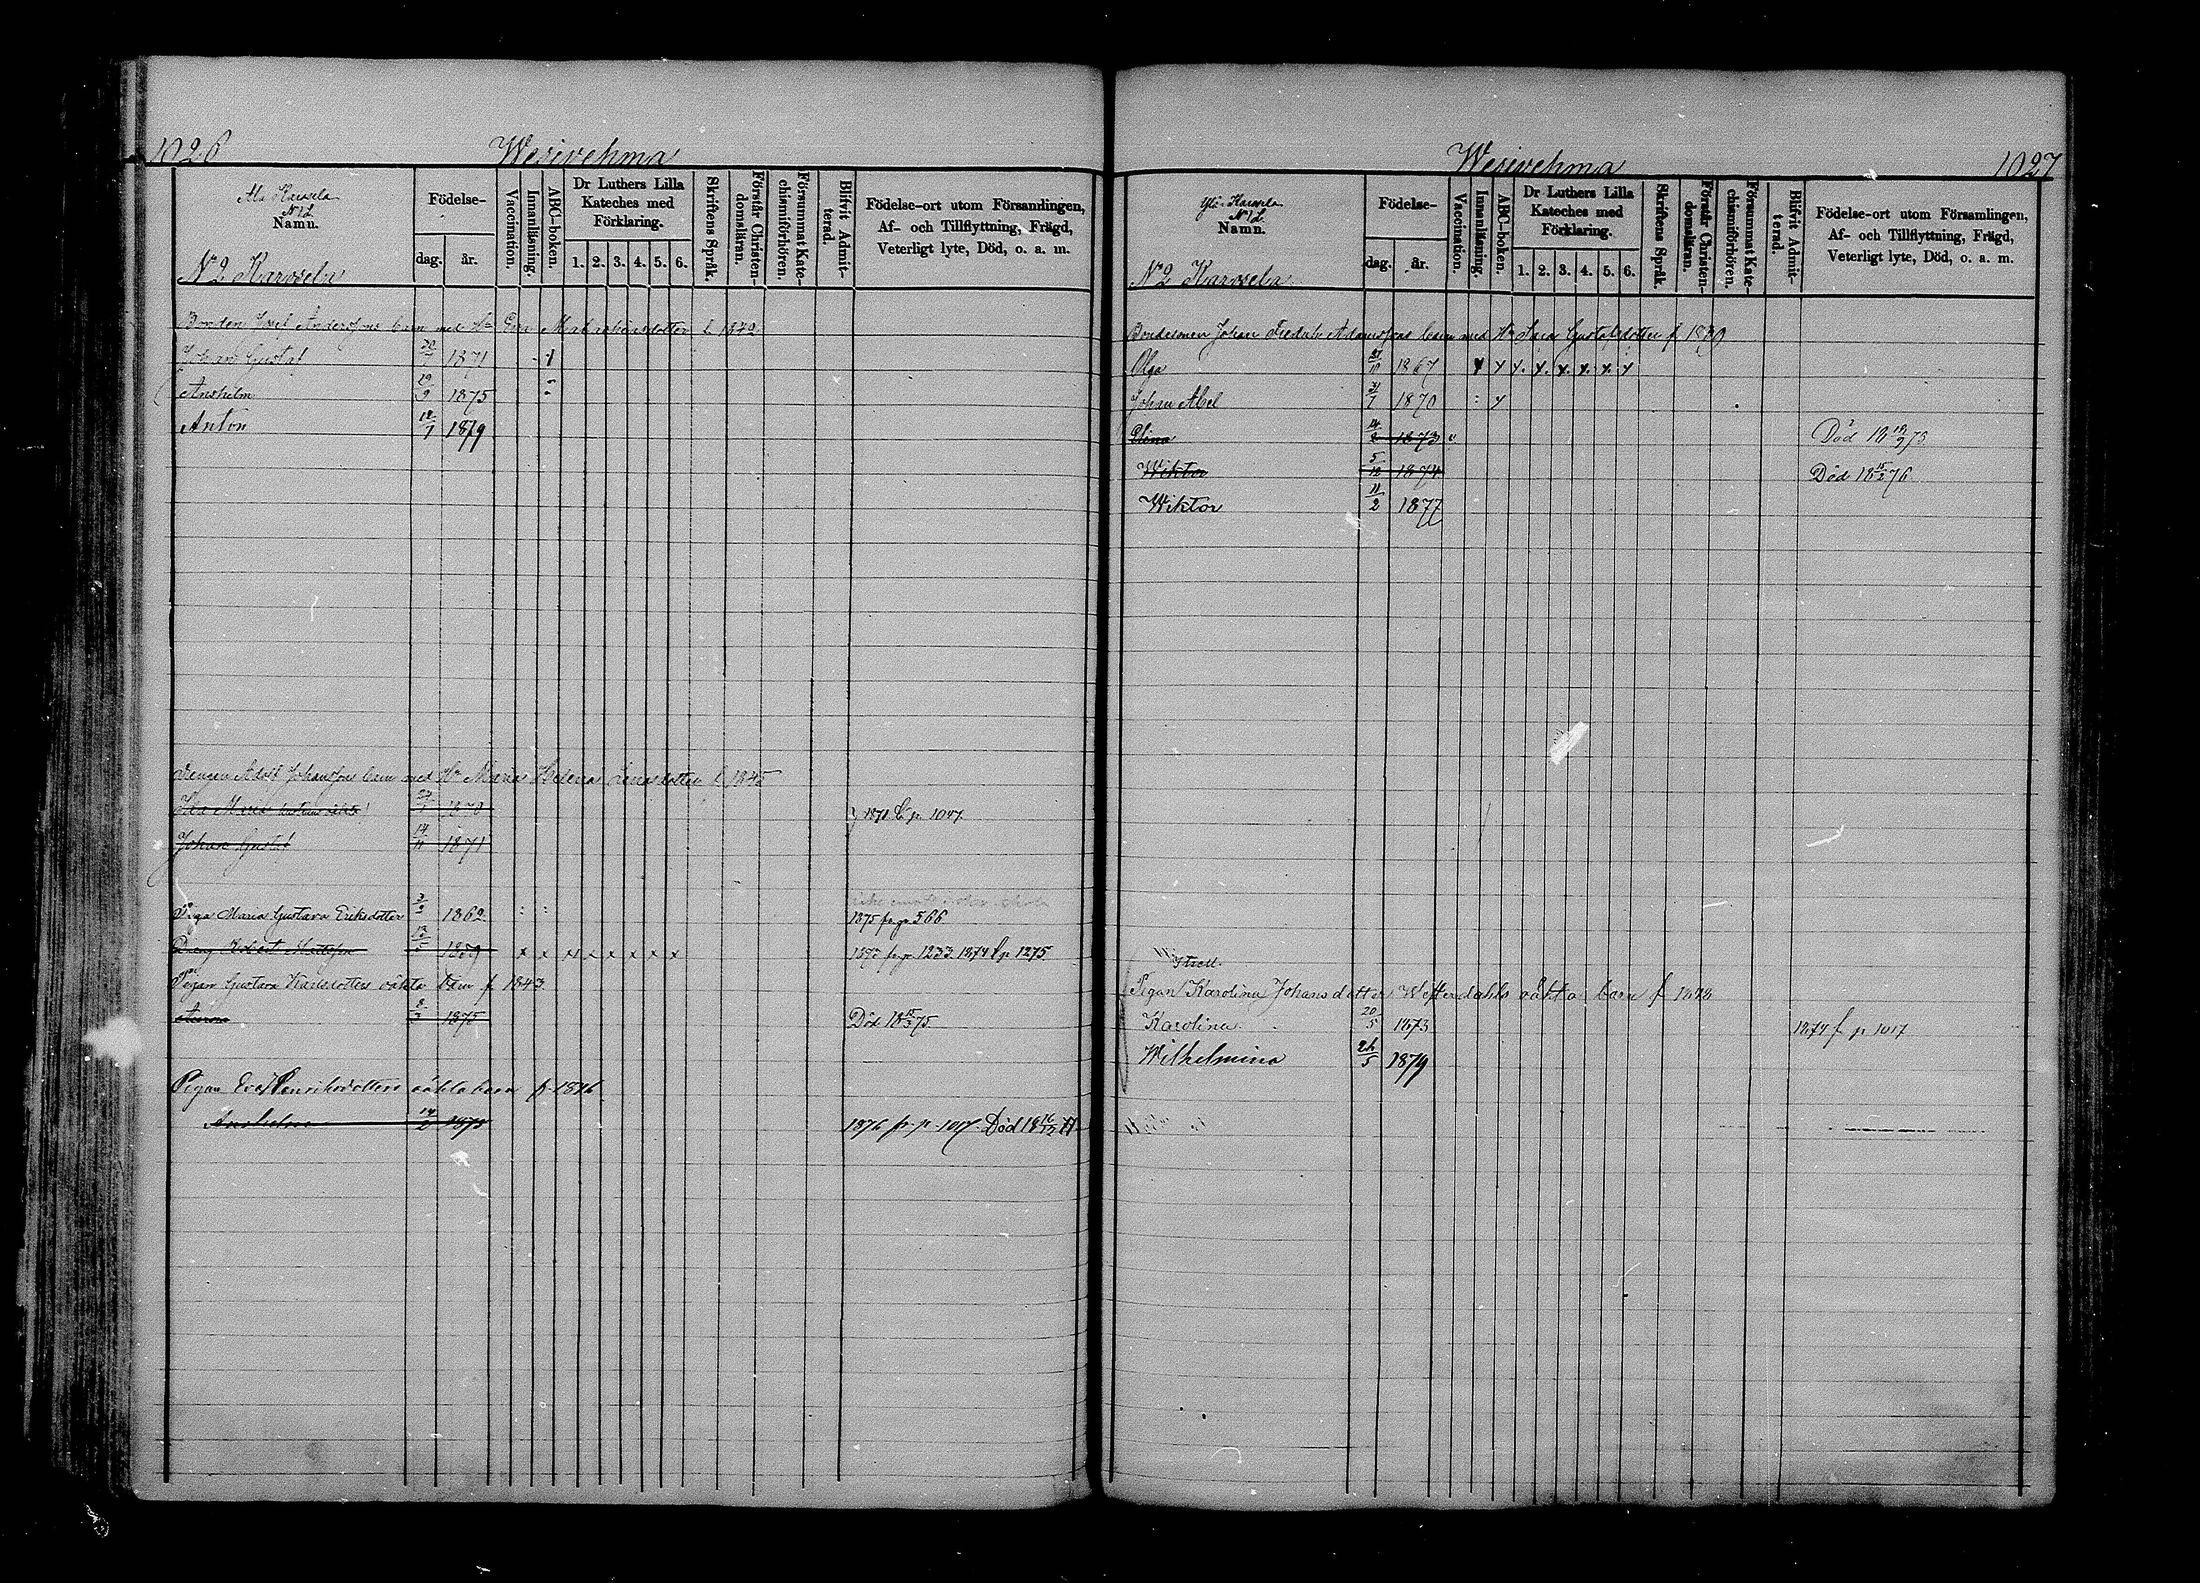 1026
Wesivehma
Ala Karvela
N:1 L
Namn.
Födelse-
dag. år.
Vaccination.
Innanläsning.
ABC-boken.
Dr Luthers Lilla
Kateches med
Förklaring.
1. 2. 3. 4. 5. 6.
Skriftens Språk.
Förstår Christen-
domsläran.
Försummat Kate-
chismiförhören.
Blifvit Admit-
terad.
Födelse-ort utom Församlingen,
Af- och Tillflyttning, Frägd,
Veterligt lyte, Död, o. a. m.
N:2 Karvela
Bonden Josef Andersons barn med H:u Eva f 1842
Johan Gustaf 1871
Anshelm 19/9 1875
Anton 12/1 1879
Drengen Adolf Johansons barn med H:u Maria Helena f 1845
Ida Maria 1870 1878 t. p. 1047
Johan Gustaf 14/11 1871
Piga Maria Gustava Eriksdotter 3/2 1862 1875 fr. p. 566
Dreng 1859 x x x x x x x x 1873 fr. p. 1233. 1874 t. p. 1275
Pigan Gustava Karlsdotters oäkta barn f 1843
1875 Död 18 75
Pigan Eva Henriksdotters oäkta barn f 1846
Anshelm 14/2 1875 1876 fr. p. 1017. Död 18 77
Wesivehma
1027
Yli Karvela
N:1 L
Namn.
Födelse-
dag. år.
Vaccination.
Innanläsning.
ABC-boken.
Dr Luthers Lilla
Kateches med
Förklaring.
1. 2. 3. 4. 5. 6.
Skriftens Språk.
Förstår Christen-
domsläran.
Försummat Kate-
chismiförhören.
Blifvit Admit-
terad.
Födelse-ort utom Församlingen,
Af- och Tillflyttning, Frägd,
Veterligt lyte, Död, o. a. m.
N:2 Karvela
Bondesonen Johan Fredrik Adamsons barn med H:u Gustafsdotter f 1839
Olga 1867
Johan Abel 31/7 1870
Elina 14/2 1873 Död 18 19/9 73
Wiktor 5/12 1874 Död 18 15/2 76
Wiktor 11/2 1877
Pigan Karolina Johansdotter Westerdahls oäkta barn f
Karolina 20/5 1873 1874 f p 1017
Wilhelmina 26/5 1879